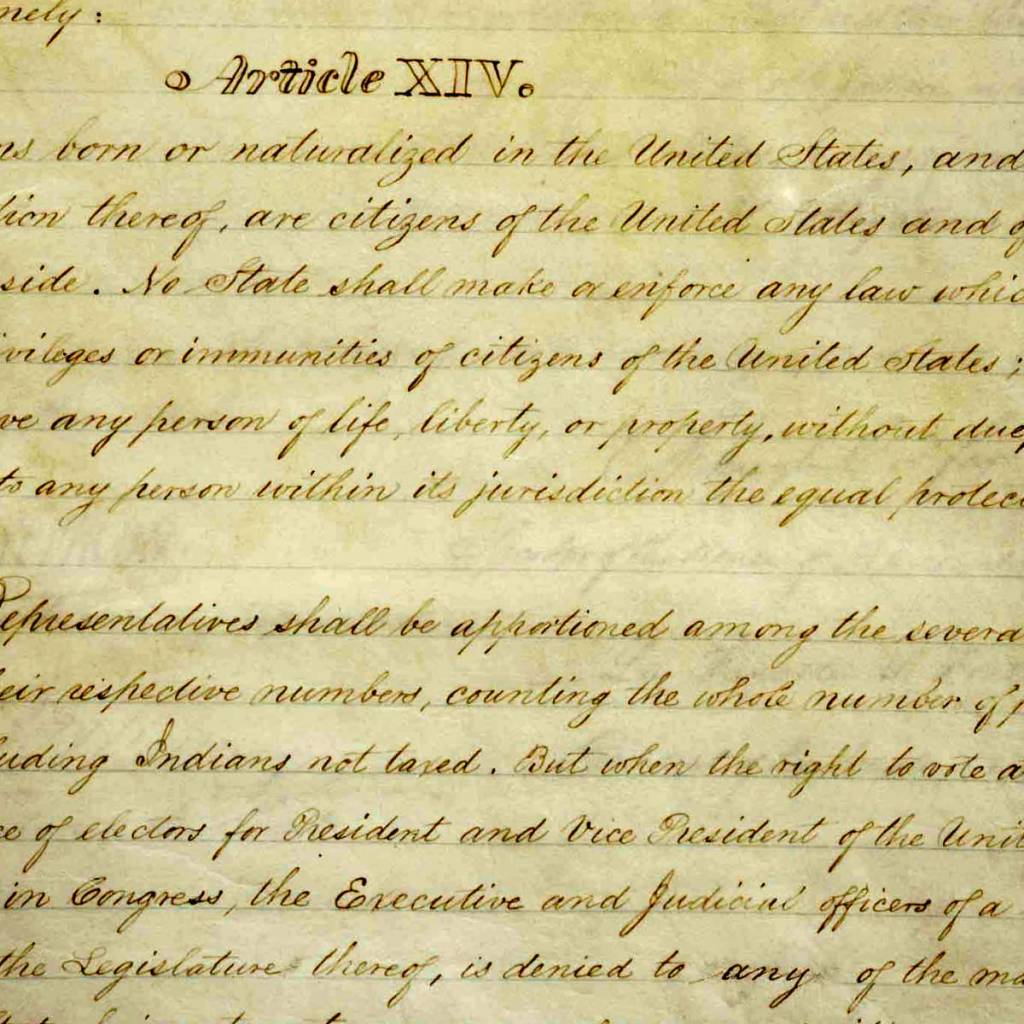 nely :
Article XIV.
ns born or naturalized in the United States, and
tion thereof, are citizens of the United States and of
side. No State shall make or enforce any law whic
ivileges or immunities of citizens of the United States ;
ve any person of life, liberty, or property, without due p
to any person within its jurisdiction the equal protec
Representatives shall be apportioned among the severa
eir respective numbers, counting the whole number of p
uding Indians not taxed. But when the right to vote a
ce of electors for President and Vice President of the Unit
in Congress, the Executive and Judicial officers of a
the Legislature thereof, is denied to any of the ma